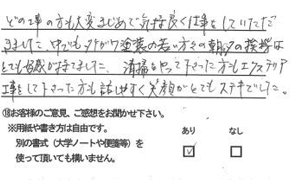 どの工事の方も大変まじめで気持良く仕事をしていただ
きました。中でもタケガワ塗装の若い方々の朝夕の挨拶は
とても好感がもてました。清掃をやって下さった方もエクステリア
工事をして下さった方も話しやすく笑顔がとてもステキでした。
⑱お客様のご意見、ご感想をお聞かせ下さい。
※用紙や書き方は自由です。 あり なし
別の書式(大学ノートや便箋等)を
使って頂いても構いません。